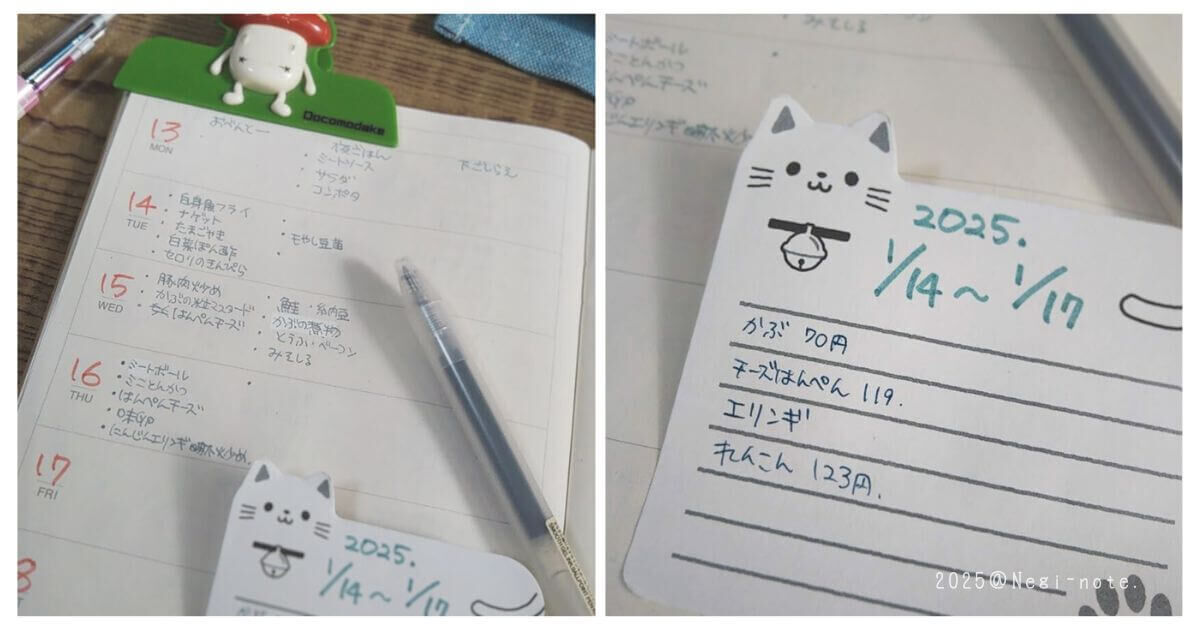 Docomodake
13
MON
おべんとー
・ミートソース
・サラダ
・コンポタ
下ごしらえ
14
TUE
・白身魚フライ
・ナゲット
・たまごやき
・白菜ぽん酢
・セロリのきんぴら
・
・モやし豆苗
・
15
WED
・豚肉炒め
・かぶの粒マスタード
はんぺんチーズ
・鮭・納豆
・かぶの煮物
とうふ・ベーコン
・みそしる
16
THU
・ミートボール
・ミニとんかつ
・はんぺんチーズ
・にんじんエリンギ
・
17
FRI
2025.
1/14〜1/17
みそしる
ミートボール
ミニとんかつ
はんぺんチーズ
2025.
1/14〜1/17
かぶ 70円
チーズはんぺん 119.
エリンギ
れんこん 123円.
2025@Negi-note.